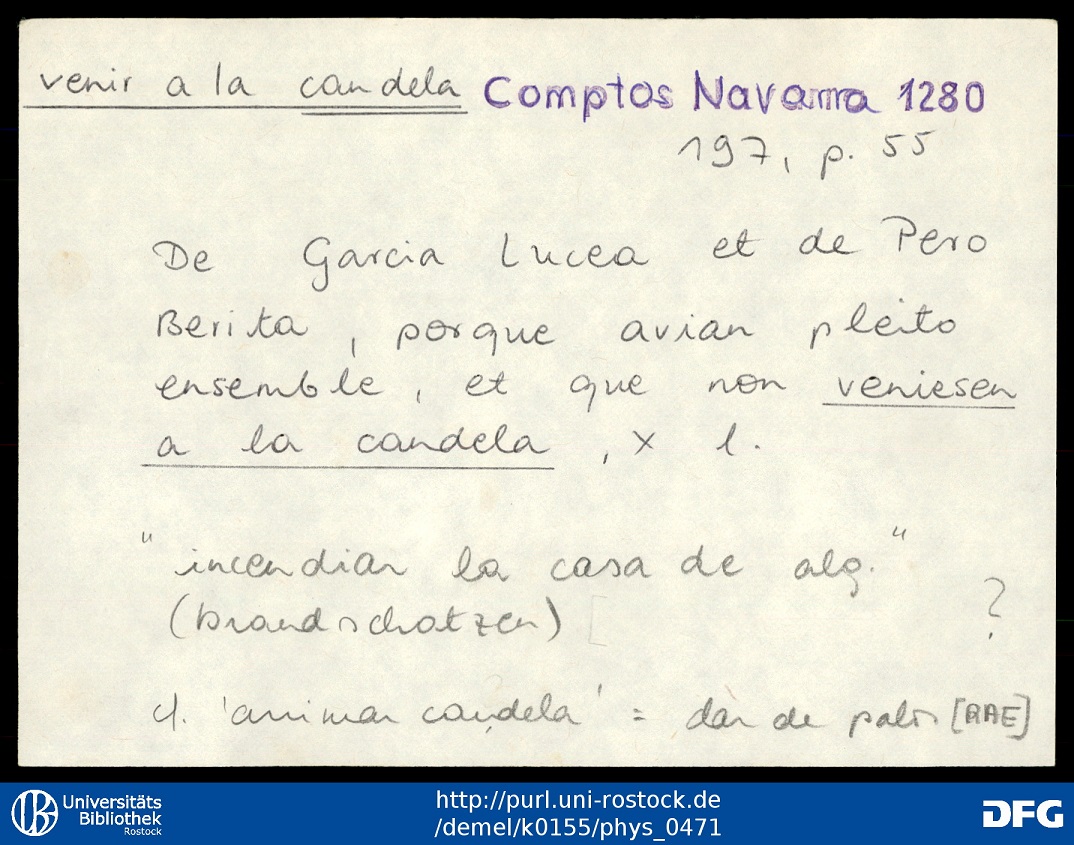 venir a la candela Comptos Navarra 1280
197, p. 55
De Garcia Lucea et de Pero
Berita, porque avian pleito
ensemble, et que non veniesen
a la candela, x l.
"incendiar la casa de alg."
(brandschatzen) ?
cf. 'arrimar candela' = dar de palos [RAE]
Universitäts
Bibliothek
Rostock
http://purl.uni-rostock.de
/demel/k0155/phys_0471
DFG